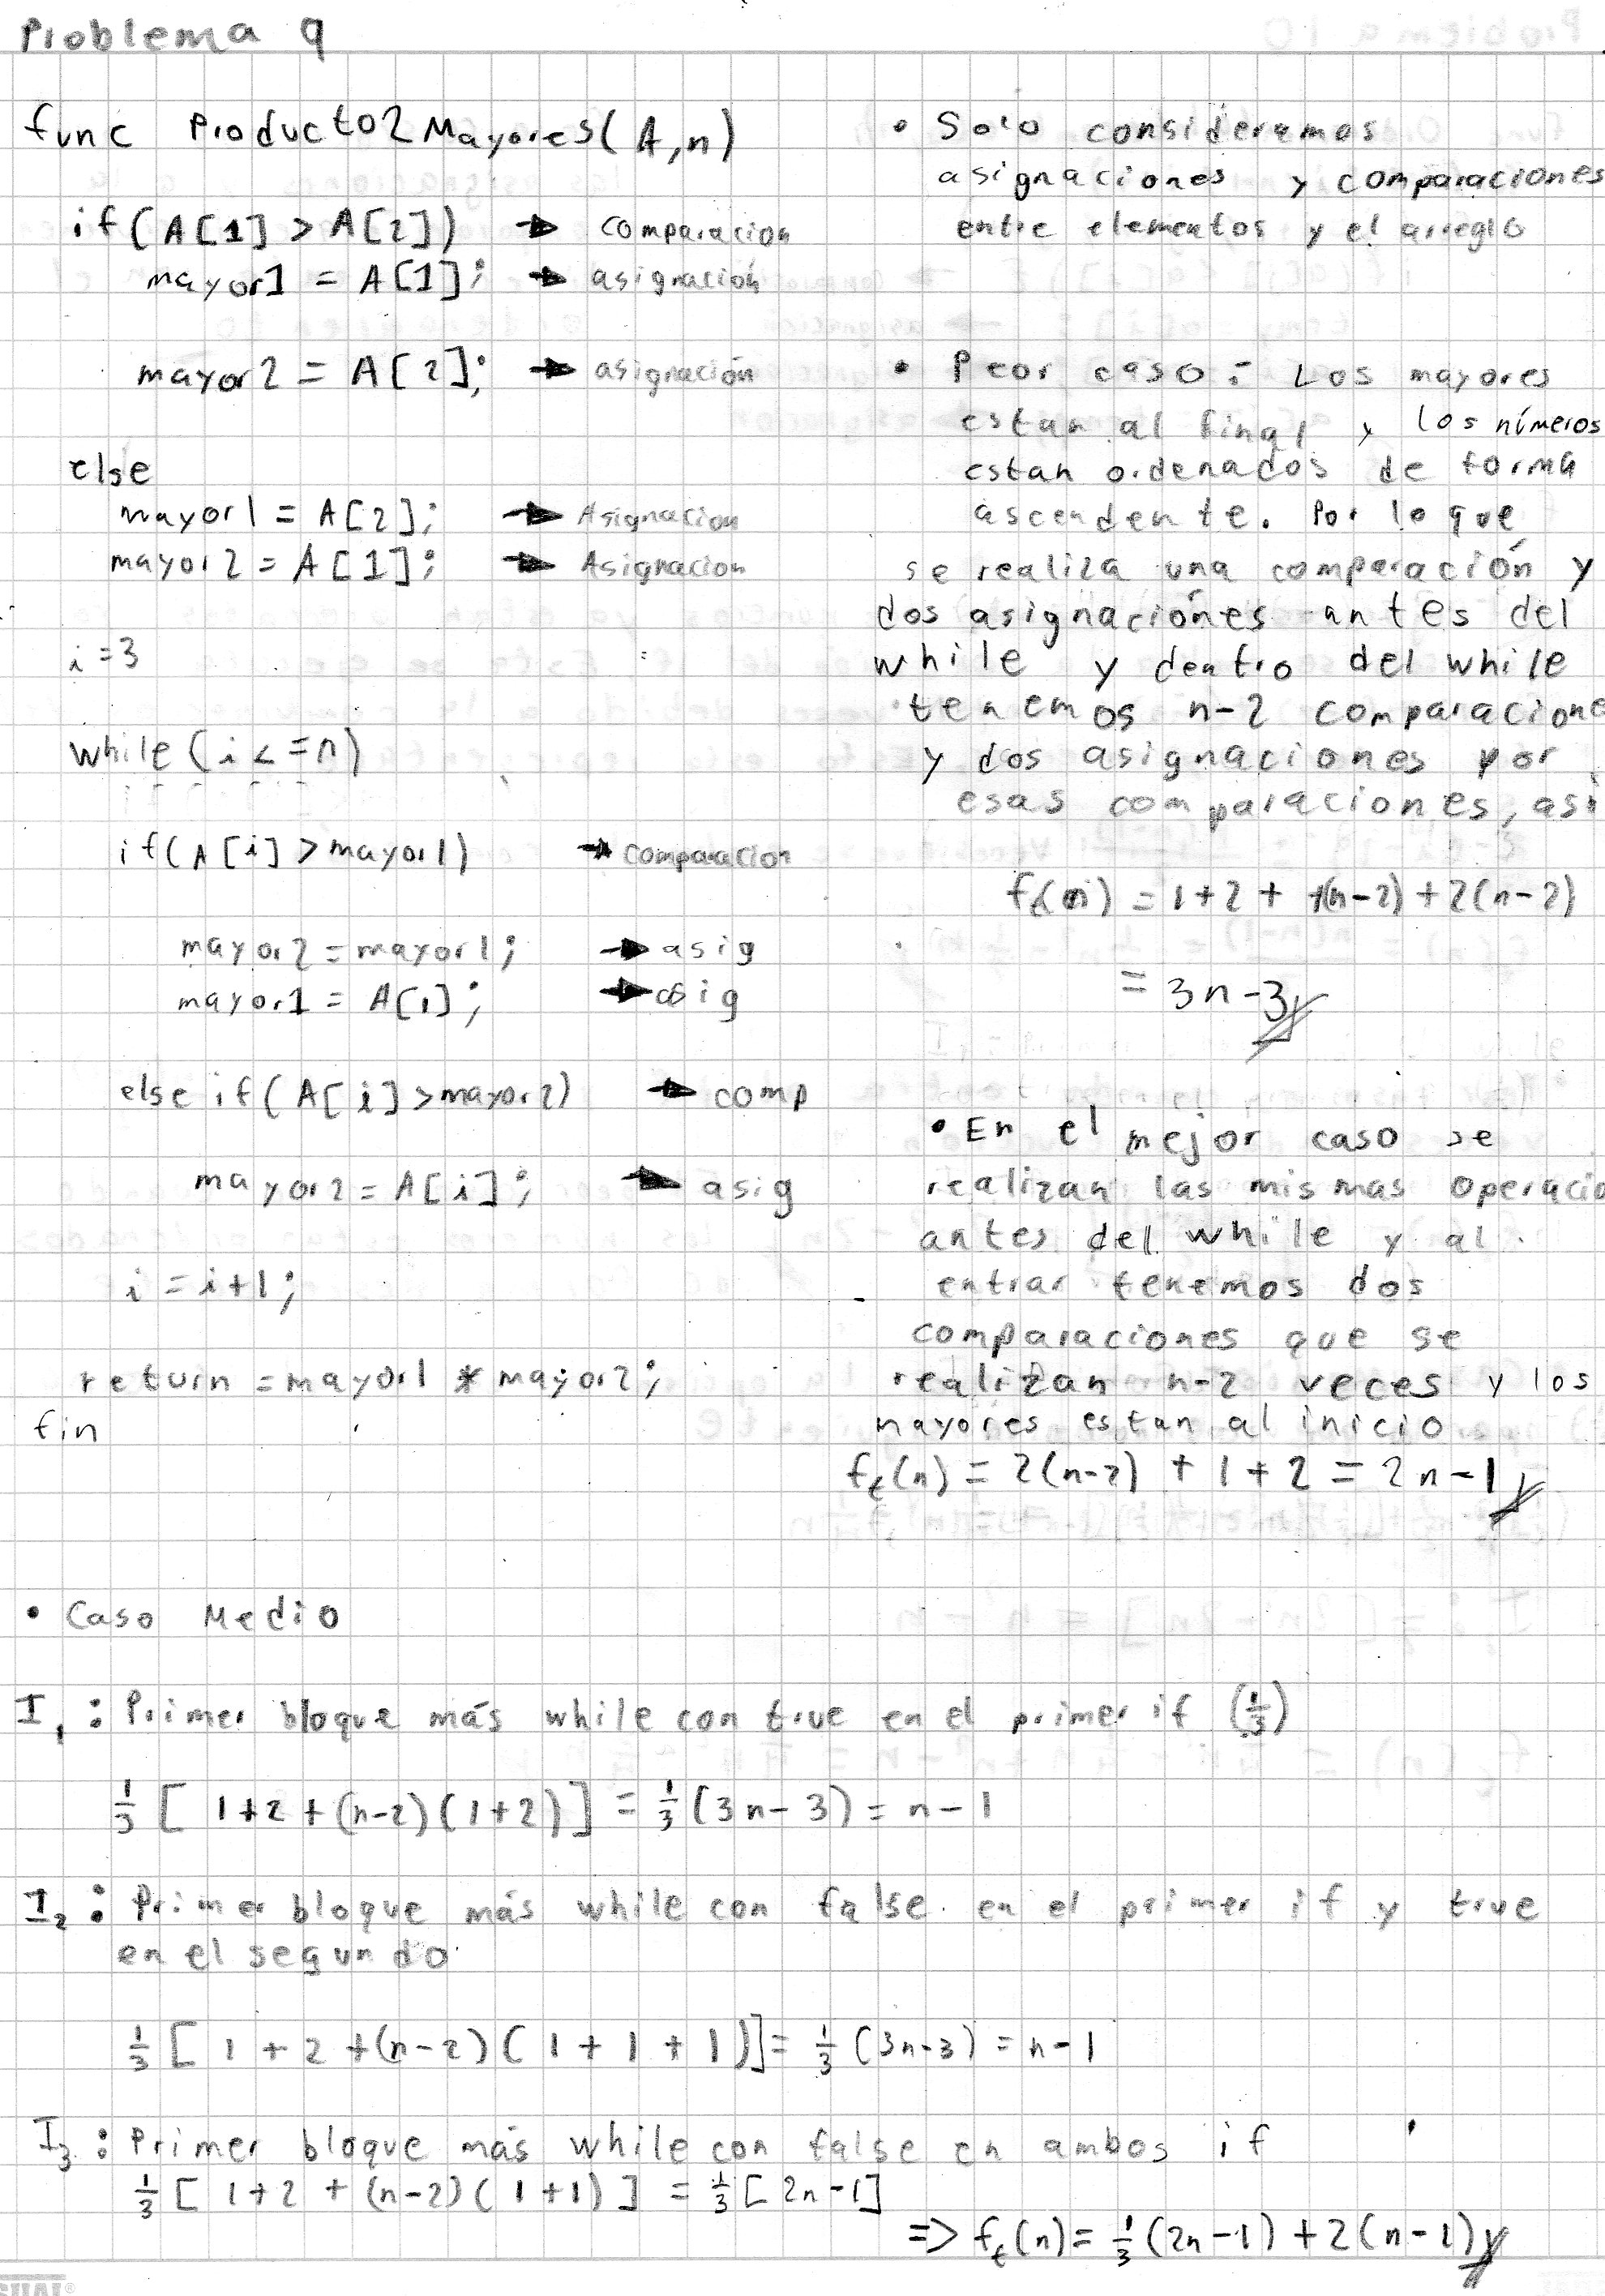 Problema 9
func Producto2Mayores(A,n)
if(A[1] > A[2]) → comparacion
mayor1 = A[1]; → asignación
mayor2 = A[2]; → asignación
else
mayor1 = A[2]; → Asignacion
mayor2 = A[1]; → Asignacion
i=3
while(i<=n)
if(A[i]>mayor1) → comparacion
mayor2=mayor1; → asig
mayor1 = A[i]; → asig
else if(A[i]>mayor2) → comp
mayor2=A[i]; → asig
i=i+1;
return=mayor1 * mayor2;
fin
• Solo consideramos
asignaciones y comparaciones
entre elementos y el arreglo
• Peor caso: Los mayores
estan al final y los números
estan ordenados de forma
ascendente. Por lo que
se realiza una comparación y
dos asignaciónes antes del
while y dentro del while
tenemos n-2 comparacione
y dos asignaciones por
esas comparaciones, asi
f_t(n) = 1+2+ 1(n-2)+2(n-2)
= 3n-3
• En el mejor caso se
realizan las mismas operacio
antes del while y al
entrar tenemos dos
comparaciones que se
realizan n-2 veces y los
mayores estan al inicio
f_t(n) = 2(n-2) + 1+2 = 2n-1
• Caso Medio
I₁: Primer bloque más while con true en el primer if (1/3)
1/3 [ 1+2+(n-2)(1+2)] = 1/3 (3n-3) = n-1
I₂: Primer bloque más while con false en el primer if y true
en el segundo
1/3 [ 1+2+(n-2)(1+1+1)] = 1/3 (3n-3) = n-1
I₃: Primer bloque más while con false en ambos if
1/3 [ 1+2 + (n-2)(1+1) ] = 1/3 [2n-1]
=> f_t(n) = 1/3 (2n-1) + 2(n-1)